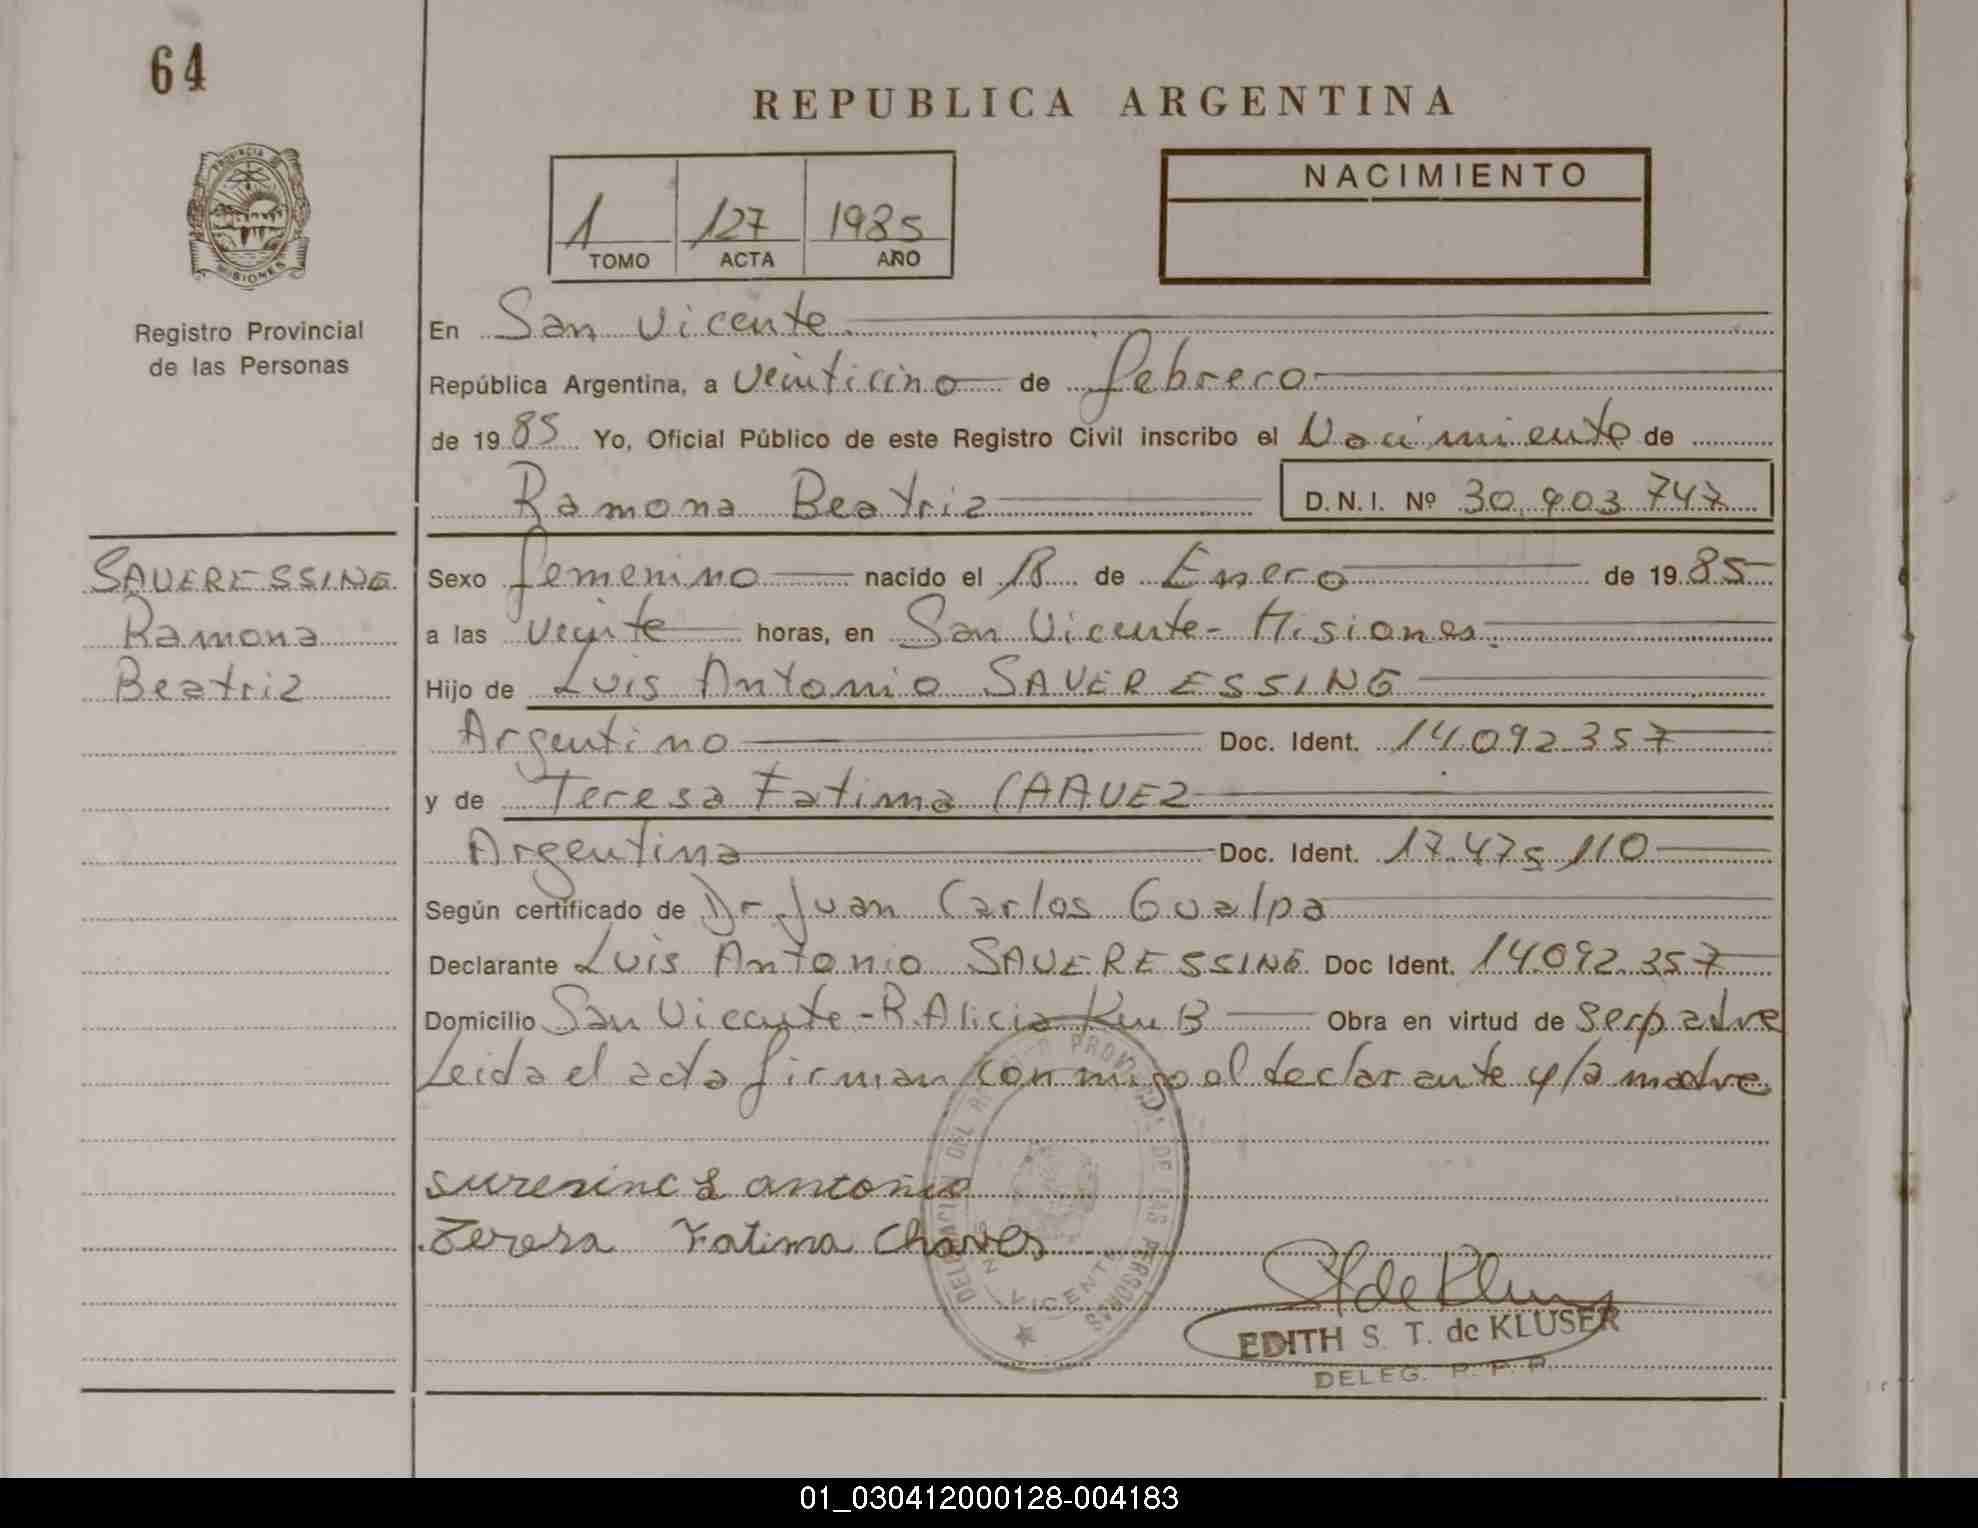 64
REPUBLICA ARGENTINA
PROVINCIA DE
MISIONES
Registro Provincial
de las Personas
1 127 1985
TOMO ACTA AÑO
NACIMIENTO
En San Vicente
República Argentina, a veinticino de febrero
de 1985 Yo, Oficial Público de este Registro Civil inscribo el Nacimiento de
Ramona Beatriz D.N.I. Nº 30.903.747
SAUERESSING
Ramona
Beatriz
Sexo femenino nacido el 18 de Enero de 1985
a las veinte horas, en San Vicente - Misiones.
Hijo de Luis Antonio SAUERESSING
Argentino Doc. Ident. 14.092.357
y de Teresa Fatima CHAVEZ
Argentina Doc. Ident. 17.475.110
Según certificado de Dr. Juan Carlos Gualpa
Declarante Luis Antonio SAUERESSING Doc Ident. 14.092.357
Domicilio San Vicente - R. Alicia Km B Obra en virtud de ser padre
Leida el acta firman conmigo el declarante y la madre
antonio
Teresa Fatima Chaves
DELEGACION DEL REGISTRO PROVINCIAL DE LAS PERSONAS
SAN VICENTE
EDITH S. T. de KLUSER
DELEG. R. P. P.
01_030412000128-004183